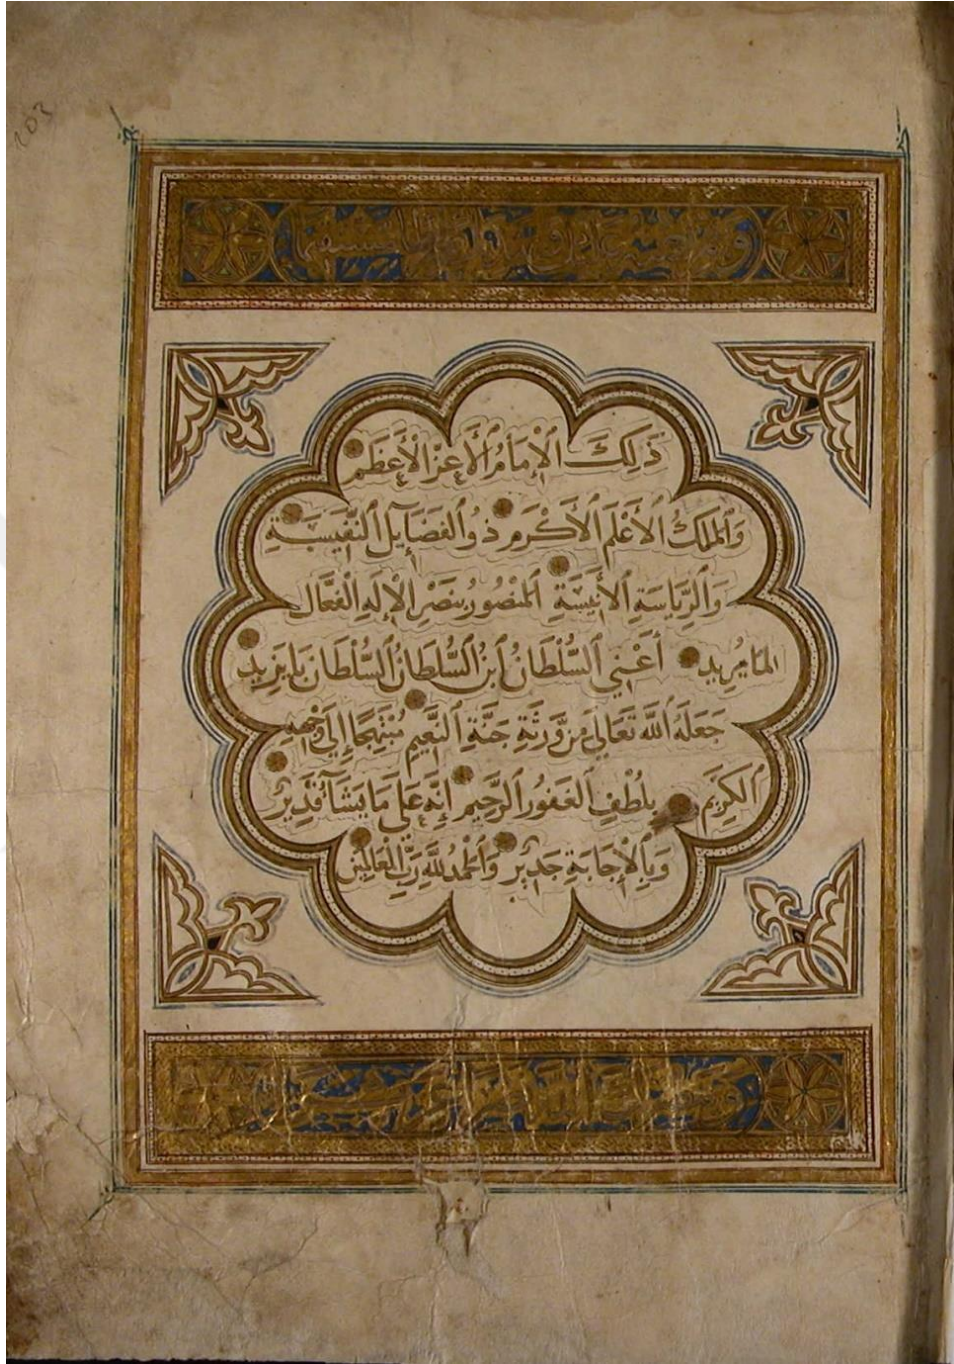 203
ذَلِكَ الْإِمَامُ الْأَعِزُّ الْأَعْظَمُ
وَالْمَلِكُ الْأَعْلَمُ الْأَكْرَمُ ذُو الْفَضَايِلِ النَّفِيسَةِ
وَالرِّيَاسَةِ الْأَنِيسَةِ الْمَنْصُورُ بِنَصْرِ الْإِلَهِ الْفَعَّالِ
لِمَا يُرِيدُ أَعْنِي السُّلْطَانُ ابْنُ السُّلْطَانُ السُّلْطَانَ بَايَزِيدَ
جَعَلَهُ اللَّهُ تَعَالَى مِنْ وَرَثَةِ جَنَّةِ النَّعِيمِ مُبْتَهِجًا إِلَى وَجْهِهِ
الْكَرِيمِ بِلُطْفِ الْغَفُورِ الرَّحِيمِ إِنَّهُ عَلَى مَا يَشَآءُ قَدِيرٌ
وَبِالْإِجَابَةِ جَدِيرٌ وَالْحَمْدُ لِلَّهِ رَبِّ الْعَالَمِينَ